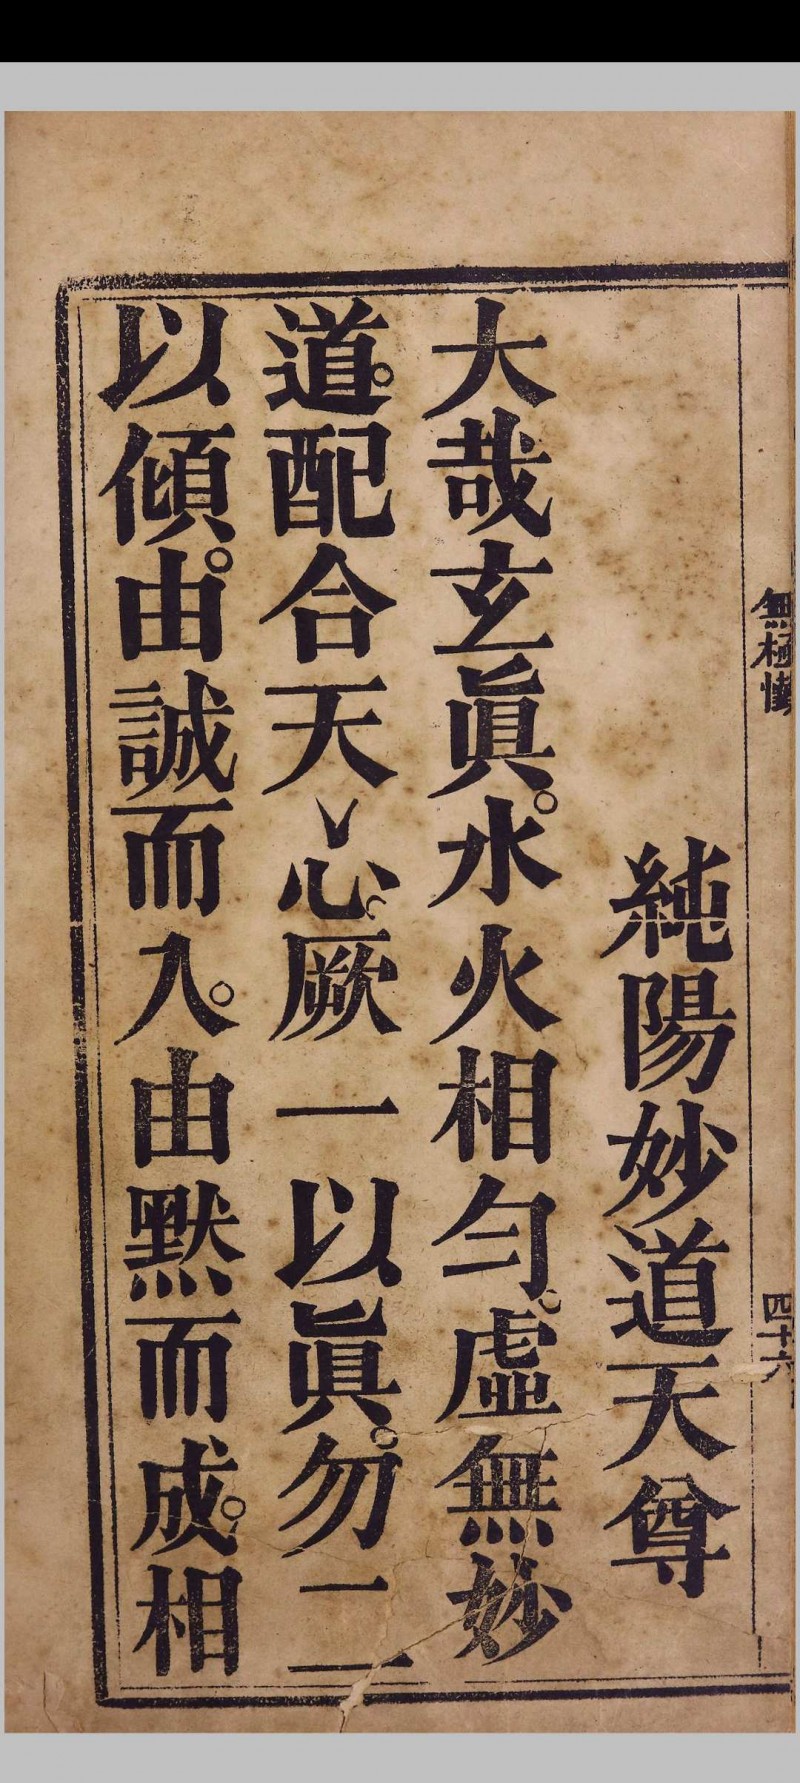 無極懺
四十六
純陽妙道天尊
大哉玄眞。水火相勻。虛無妙
道。配合天心。厥一以眞。勿二
以傾。由誠而入。由默而成。相